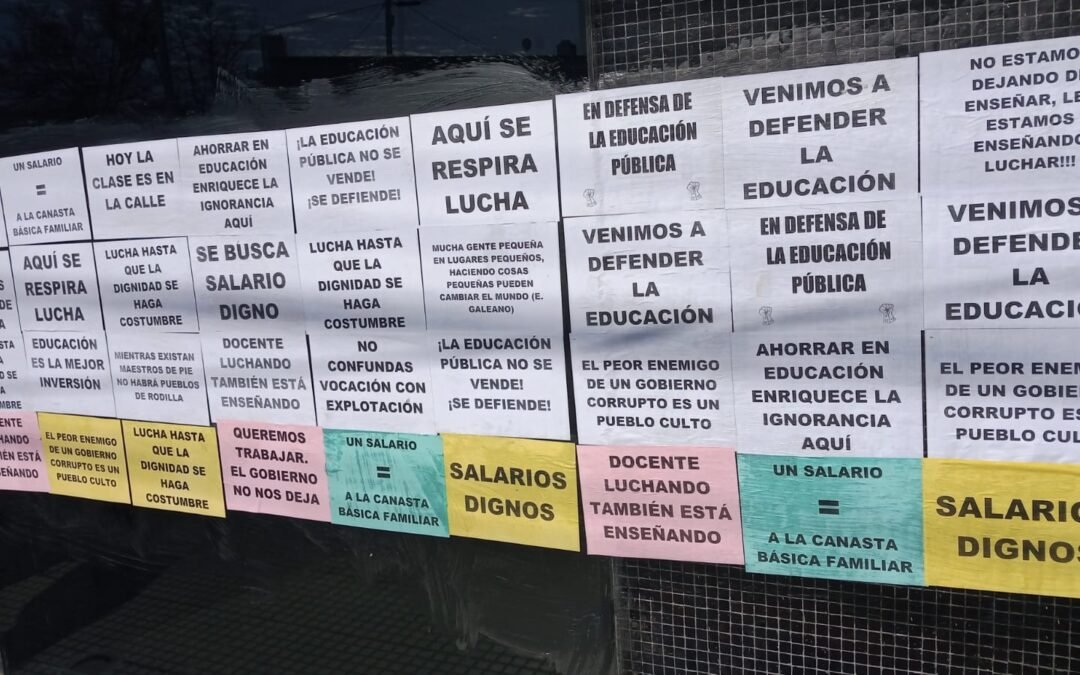 UN SALARIO
=
A LA CANASTA
BÁSICA FAMILIAR
HOY LA
CLASE ES EN
LA CALLE
AHORRAR EN
EDUCACIÓN
ENRIQUECE LA
IGNORANCIA
AQUÍ
¡LA EDUCACIÓN
PÚBLICA NO SE
VENDE!
¡SE DEFIENDE!
AQUÍ SE
RESPIRA
LUCHA
EN DEFENSA DE
LA EDUCACIÓN
PÚBLICA
VENIMOS A
DEFENDER
LA
EDUCACIÓN
NO ESTAMO
DEJANDO DE
ENSEÑAR, LE
ESTAMOS
ENSEÑANDO
LUCHAR!!!
AQUÍ SE
RESPIRA
LUCHA
LUCHA HASTA
QUE LA
DIGNIDAD SE
HAGA
COSTUMBRE
SE BUSCA
SALARIO
DIGNO
LUCHA HASTA
QUE LA
DIGNIDAD SE
HAGA
COSTUMBRE
MUCHA GENTE PEQUEÑA
EN LUGARES PEQUEÑOS,
HACIENDO COSAS
PEQUEÑAS PUEDEN
CAMBIAR EL MUNDO (E.
GALEANO)
VENIMOS A
DEFENDER
LA
EDUCACIÓN
EN DEFENSA DE
LA EDUCACIÓN
PÚBLICA
VENIMOS
DEFENDE
LA
EDUCACIÓ
ASTA
LA
AD SE
A
UMBRE
EDUCACIÓN
ES LA MEJOR
INVERSIÓN
MIENTRAS EXISTAN
MAESTROS DE PIE
NO HABRÁ PUEBLOS
DE RODILLA
DOCENTE
LUCHANDO
TAMBIÉN ESTÁ
ENSEÑANDO
NO
CONFUNDAS
VOCACIÓN CON
EXPLOTACIÓN
¡LA EDUCACIÓN
PÚBLICA NO SE
VENDE!
¡SE DEFIENDE!
EL PEOR ENEMIGO
DE UN GOBIERNO
CORRUPTO ES UN
PUEBLO CULTO
AHORRAR EN
EDUCACIÓN
ENRIQUECE LA
IGNORANCIA
AQUÍ
EL PEOR ENEM
DE UN GOBIERN
CORRUPTO ES
PUEBLO CUL
ENTE
HANDO
IÉN ESTÁ
EÑANDO
EL PEOR ENEMIGO
DE UN GOBIERNO
CORRUPTO ES UN
PUEBLO CULTO
LUCHA HASTA
QUE LA
DIGNIDAD SE
HAGA
COSTUMBRE
QUEREMOS
TRABAJAR.
EL GOBIERNO
NO NOS DEJA
UN SALARIO
=
A LA CANASTA
BÁSICA FAMILIAR
SALARIOS
DIGNOS
DOCENTE
LUCHANDO
TAMBIÉN ESTÁ
ENSEÑANDO
UN SALARIO
=
A LA CANASTA
BÁSICA FAMILIAR
SALARIO
DIGNOS